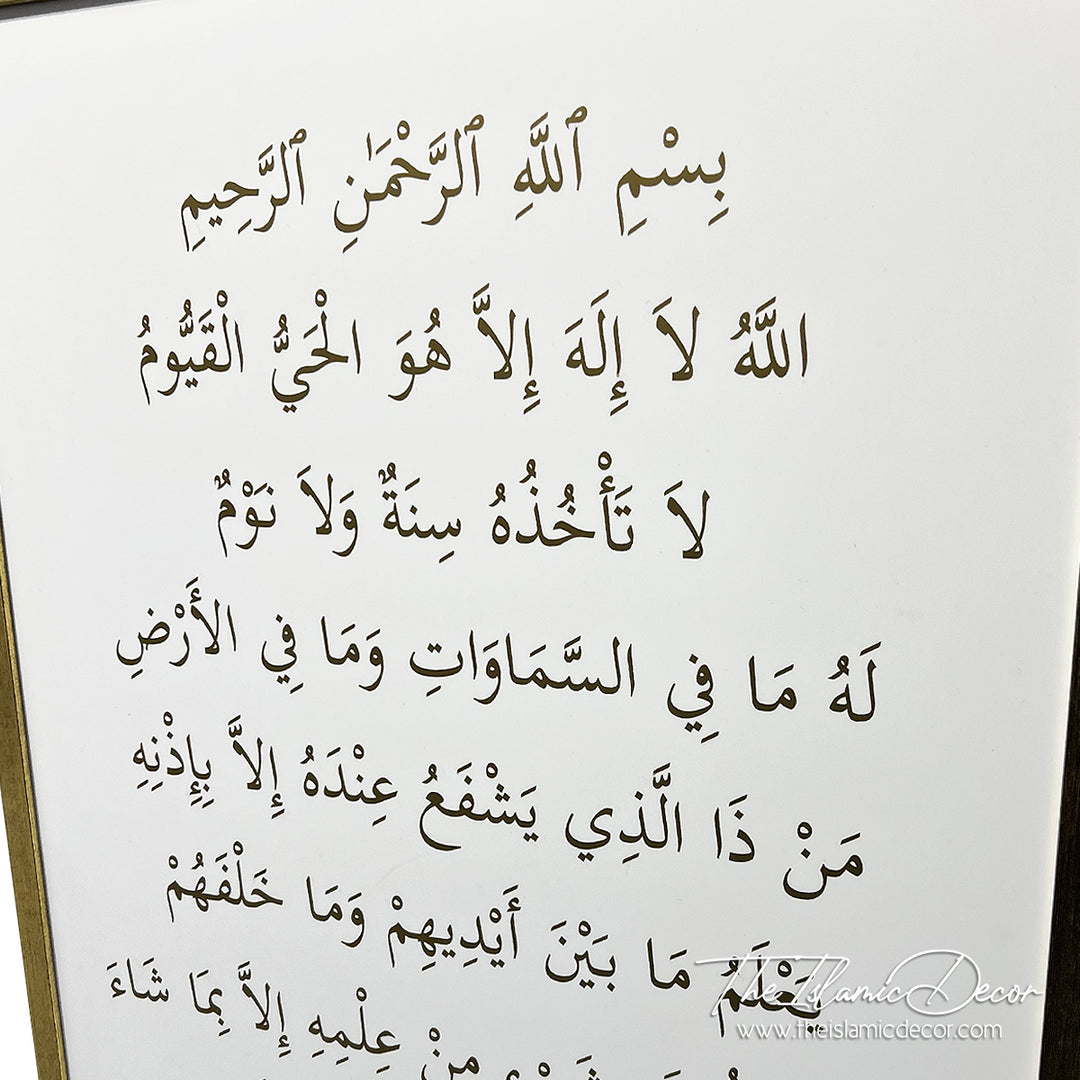 بِسْمِ ٱللَّهِ ٱلرَّحْمَٰنِ ٱلرَّحِيمِ
اللَّهُ لاَ إِلَهَ إِلاَّ هُوَ الْحَيُّ الْقَيُّومُ
لاَ تَأْخُذُهُ سِنَةٌ وَلاَ نَوْمٌ
لَهُ مَا فِي السَّمَاوَاتِ وَمَا فِي الأَرْضِ
مَنْ ذَا الَّذِي يَشْفَعُ عِنْدَهُ إِلاَّ بِإِذْنِهِ
يَعْلَمُ مَا بَيْنَ أَيْدِيهِمْ وَمَا خَلْفَهُمْ
مِنْ عِلْمِهِ إِلاَّ بِمَا شَاءَ
The Islamic Decor
www.theislamicdecor.com